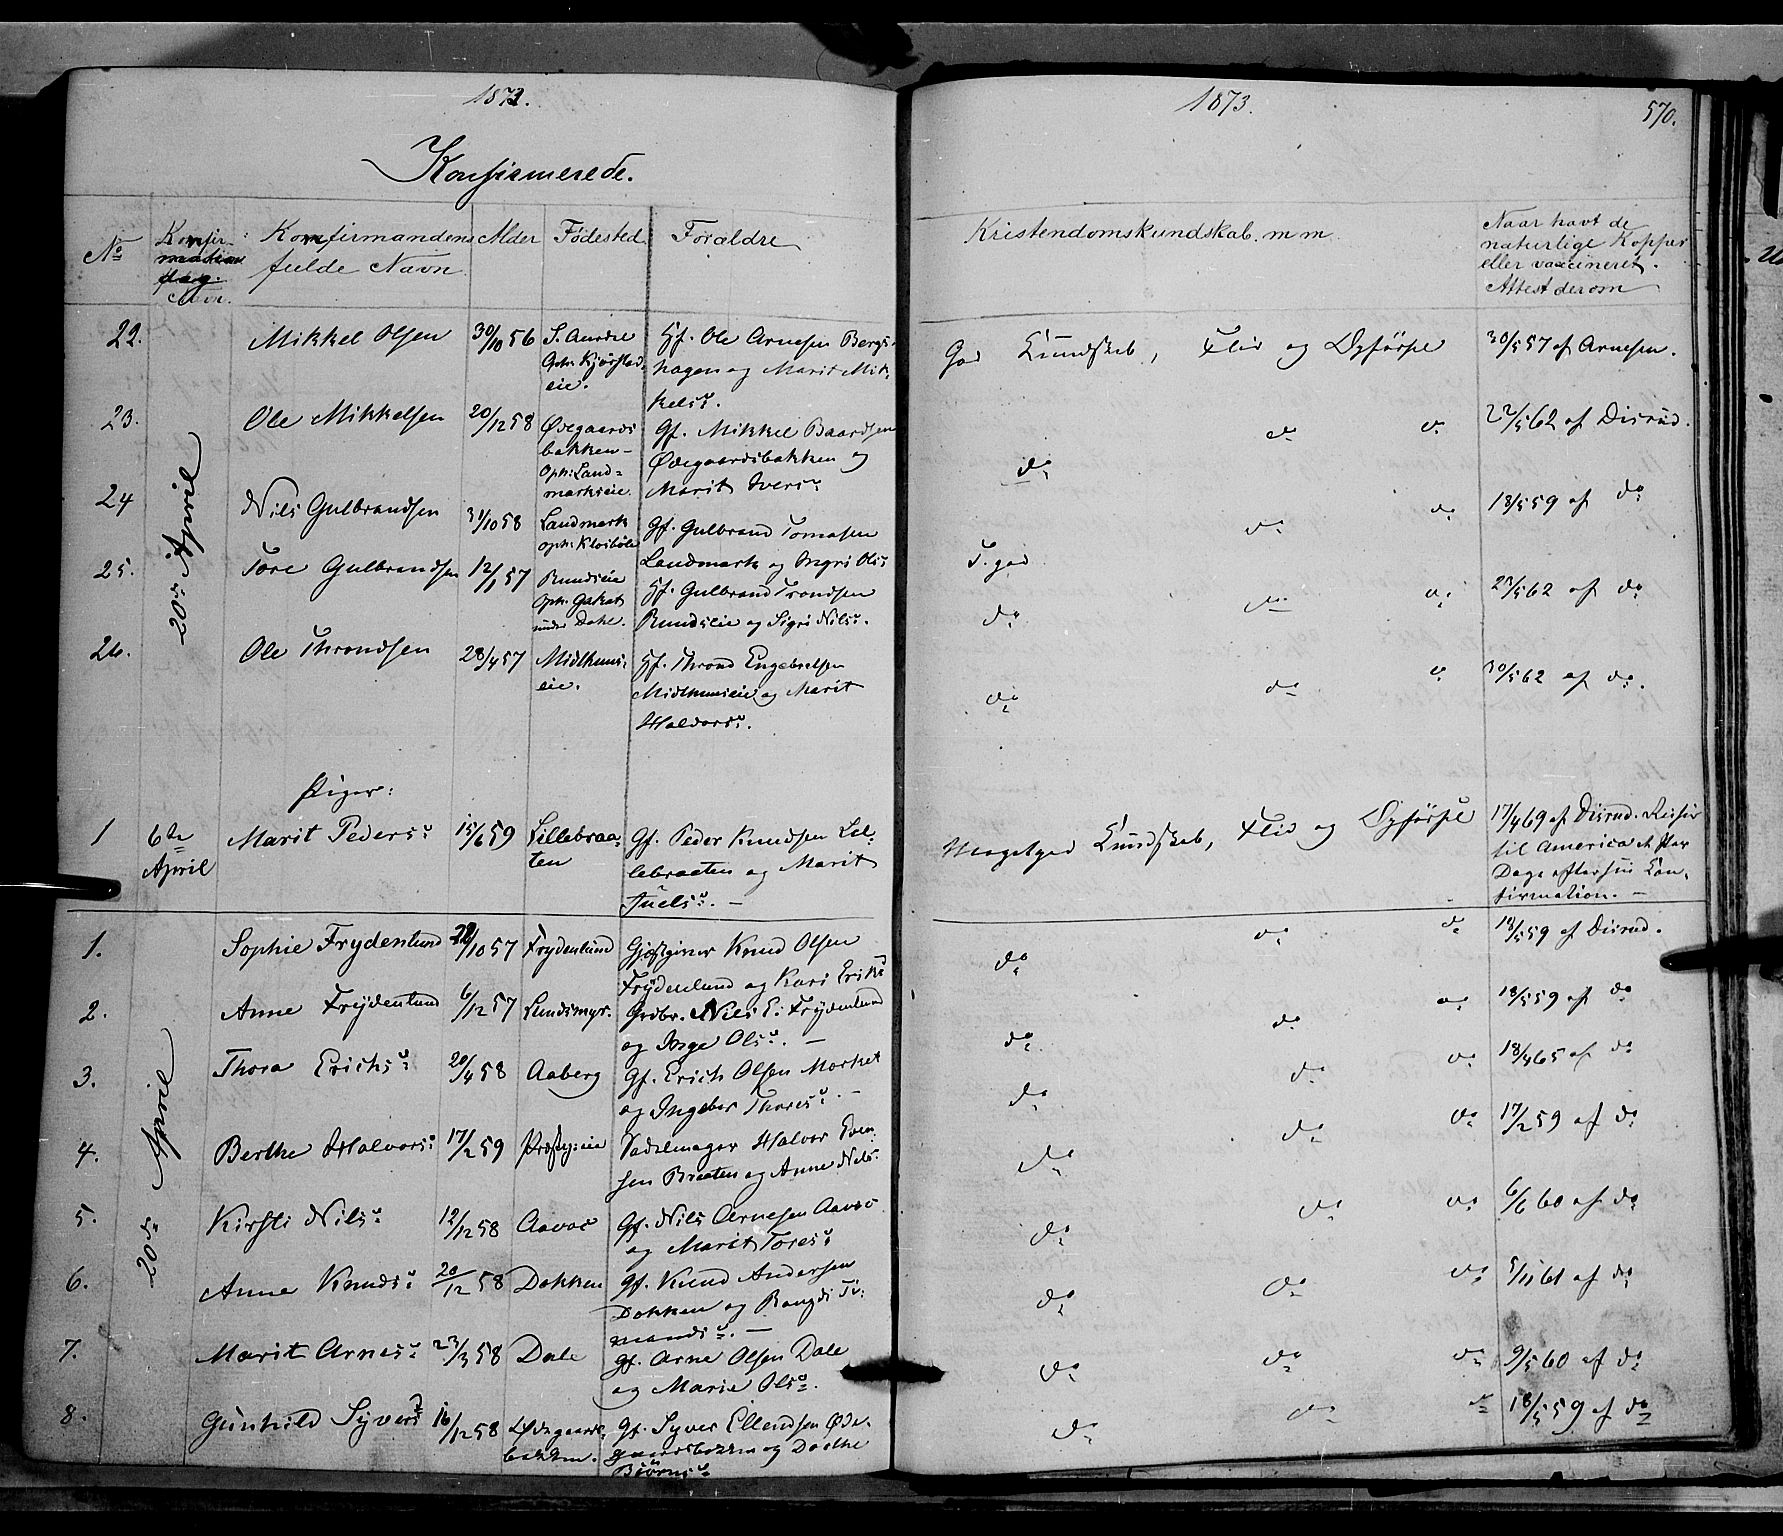 1873.
Konfirmerede.
No
Konfir-
dag.
Navn.
Konfirmandens
fulde Navn
Alder
Fødested
Forældre
22.
Mikkel Olsen
30/10 56
S. Aurdal
Oph. Kjørstad-
eie.
Hf. Ole Arnesen Bergs-
hagen og Marit Mik-
kelsd.
23.
Ole Mikkelsen
20/12 58
Ødegaards
bakken -
Oph: Land=
markseie.
Gf. Mikkel Baardsen
Ødegaardsbakken og
Marit Iversd
24
Nils Gulbrandsen
31/10 58
Landmark
oph:
Gf. Gulbrand Tomasen
Landmark og Ingri Olsd
25.
Tore Gulbrandsen
12/1 57
Rundseie
Oph.
under Dahl.
Hf. Gulbrand Trondsen
Rundseie og Sigri Nilsd.
26.
Ole Throndsen
28/4 57
Midthuus-
eie.
Hf. Thrond Engebretsen
Midthuuseie og Marit
Halvorsd.
20de April
Piger:
1
6te
April
Marit Pedersd
15/6 59
Lillebraa-
ten
Gf. Peder Knudsen Lil-
lebraaten og Marit
Juelsd. -
1.
Sophie Frydenlund
22/10 57
Frydenlund
Gjæstgiver Knud Olsen
Frydenlund og Kari Eriksd
2.
Anne Frydenlund
6/12 57
Lundsmyr.
Grdbr. Nils E. Frydenlund
og Inge Olsd. -
3.
Thora Ericksd
20/4 58
Aaberg
Gf. Erich Olsen Morket
og Ingebor Thoresd. -
4.
Berthe Halvorsd
17/2 59
Præstg:eie
Sadelmager Halvor Even-
sen Braaten og Anne Nilsd.
5.
Kirsti Nilsd
12/12 58
Gf. Nils Arnesen
og Marit Toresd
6.
Anne Knudsd
20/12 58
Dokken
Gf. Knud Andersen
Dokken og Rangdi Ti-
mandsd. -
7.
Marit Arnesd
23/3 58
Dale
Gf. Arne Olsen Dale
og Marie Olsd.
8.
Gunhild Syversd
16/12 58
Ødegaards-
bakken.
Gf. Syver Ellendsen Øde-
gaardsbakken og Dorthe
Biørnsd
20de April
1873.
570.
Kristendomskundskab. m m
Naar havt de
naturlige Kopper
eller vaccineret.
Attest derom
God Kundskab, Flid og Opførsel
30/5 57 af Arnesen.
do do do
22/5 62 af Disrud.
T. god do do
18/5 59 af do
do do do
25/5 62 af do
do do do
30/5 62 af do.
Megetgod Kundskab, Flid og Opførsel
17/4 69 af Disrud. Reiser
til America et Par
Dage efter sin Kon-
firmation. -
do do do
18/5 59 af Disrud.
do do do
18/5 59 af do
do do do
18/4 65 af do
do do do
17/2 59 af do
do do do
6/6 60 af do
do do do
5/11 61 af do
do do do
9/5 60 af do
do do do
18/5 59 af do